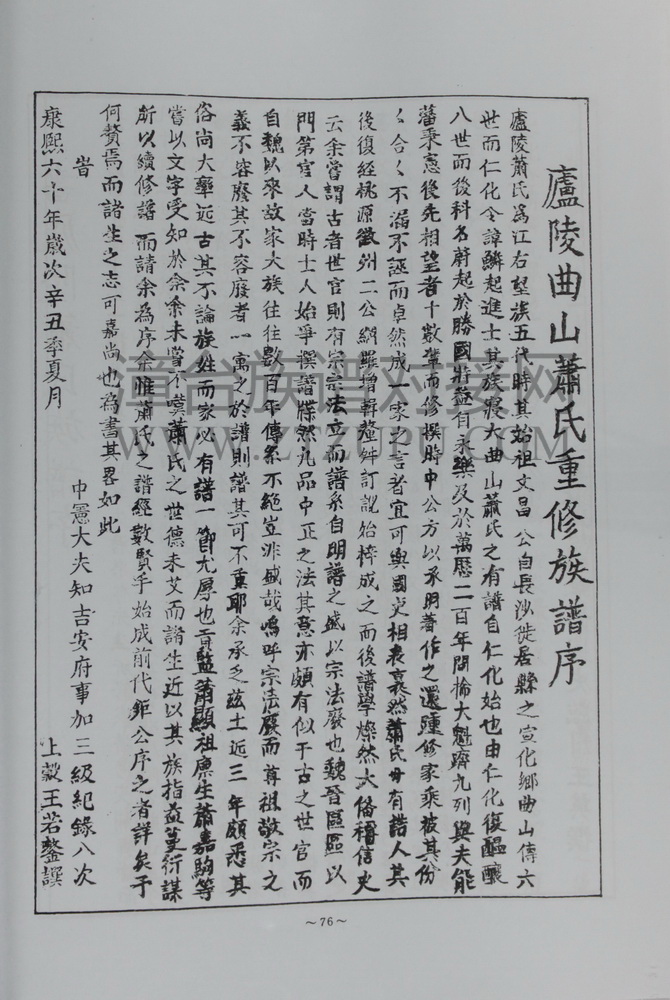 廬陵曲山蕭氏重修族譜序
廬陵蕭氏為江右望族五代時其始祖文昌公自長沙徙居縣之宣化鄉曲山傳六
世而仁化令諱鱗起進士其族寖大曲山蕭氏之有譜自仁化始也由仁化復醞釀
八世而後科名蔚起於勝國時益自永樂及於萬曆二百年間掄大魁躋九列與夫能
藩秉憲後先相望者十數輩而修撰時中公方以承明著作之選踵修家乘被其份
〻合〻不溺不誣而卓然成一家之言者宜可與國史相表裏然蕭氏世有諳人其
後復經桃源徽州二公網羅增輯釐舛訂訛始梓成之而後譜學燦然大備稽信史
云余嘗謂古者世官則有宗宗法立而譜系自明譜之盛以宗法廢也魏晉區區以
門第官人當時士人始爭撰譜牒然九品中正之法其意亦頗有似于古之世官而
自魏以來故家大族往往數百年傳系不絕豈非盛哉嗚呼宗法廢而尊祖敬宗之
義不容廢其不容廢者一寓之於譜則譜其可不重耶余承乏茲土近三年頗悉其
俗尚大率近古其不論族姓而家必有譜一節尤厚也首監蕭顯祖廩生蕭嘉駒等
嘗以文字受知於余余未嘗不嘆蕭氏之世德未艾而諸生近以其族指益蔓衍謀
所以續修譜而請余為序余惟蕭氏之譜經數賢手始成前代鉅公序之者詳矣予
何贅焉而諸生之志可嘉尚也為書其畧如此
旹
康熙六十年歲次辛丑季夏月
中憲大夫知吉安府事加三級紀錄八次
上穀王若鰲譔
漳台族譜對接网
WWW.ZTZUPU.COM
~76~